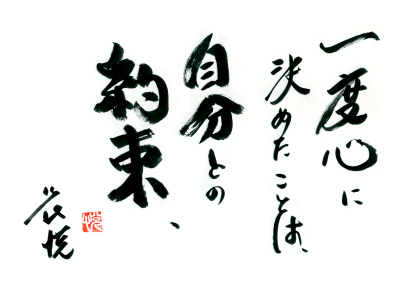 一度心に
決めたことは、
自分との
約束、